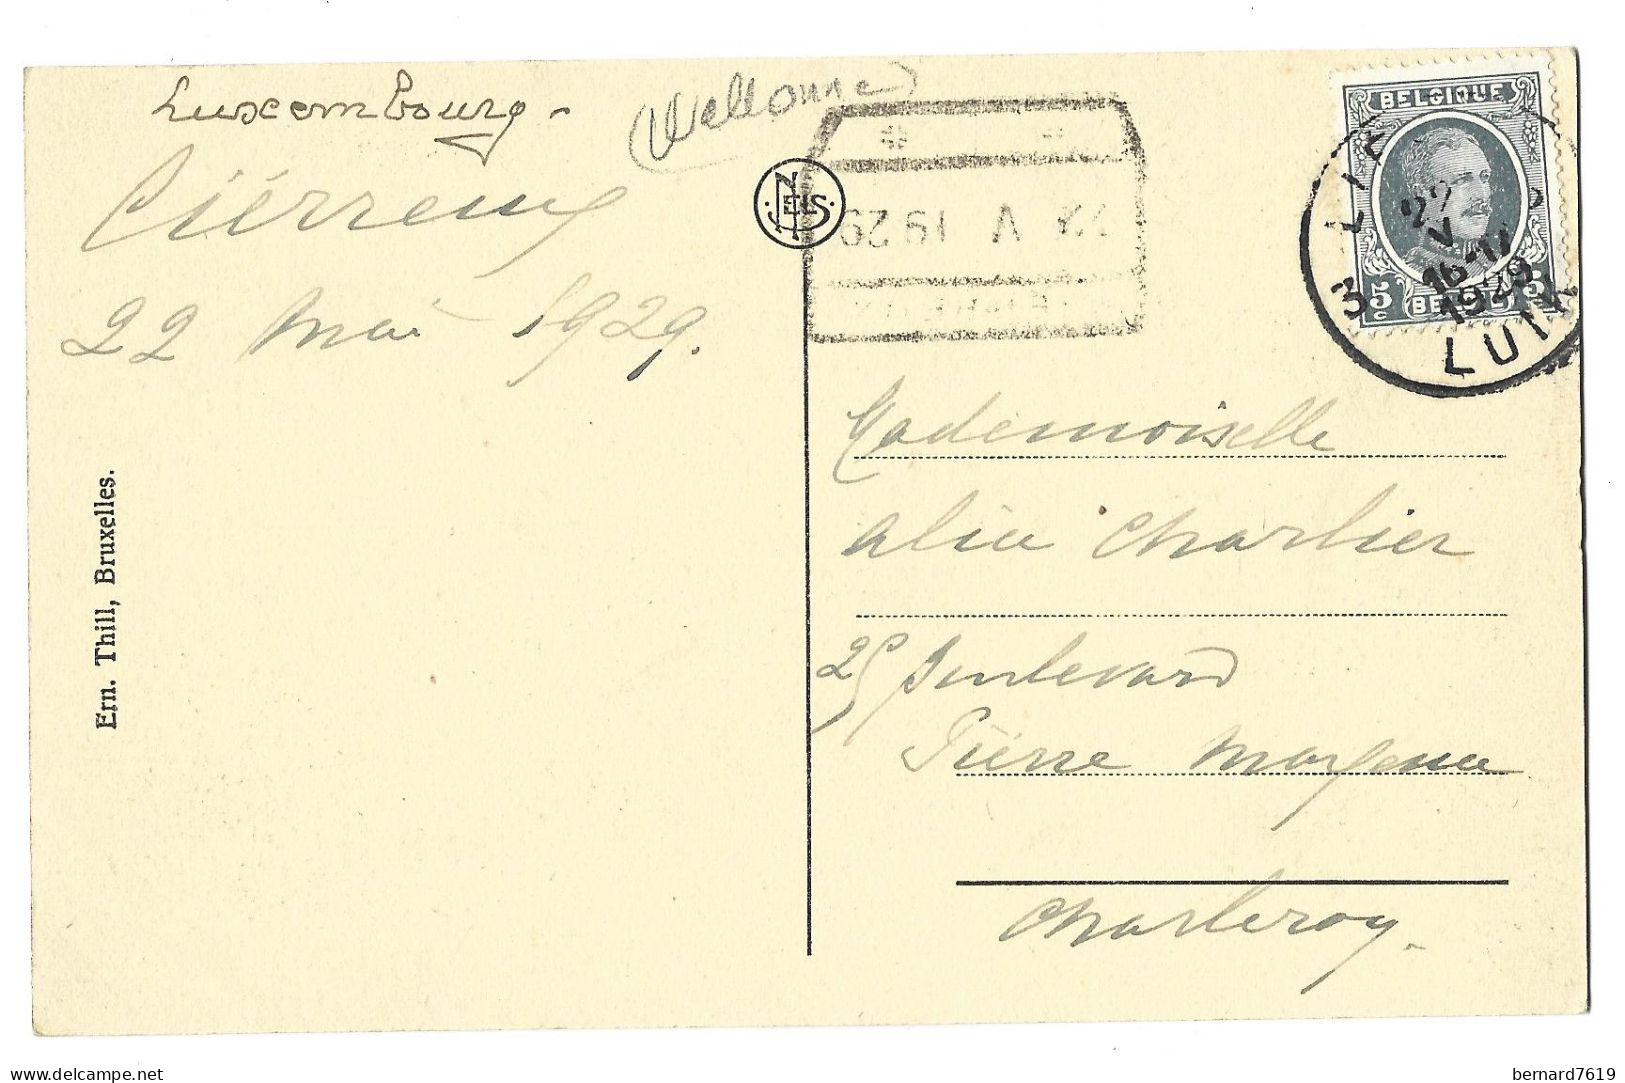 Luxembourg -
(Wellonne)
Cierreux
22 Mai 1929.
NELS
22 V 1929
BELGIQUE
5c BELGIË 5c
LUIK
22
V
16-17
1929
3 LUIK
Mademoiselle
Alice Charlier
25 Boulevard
Pierre Mayence
Charleroy.
Ern. Thill, Bruxelles.
bernard7619
www.delcampe.net